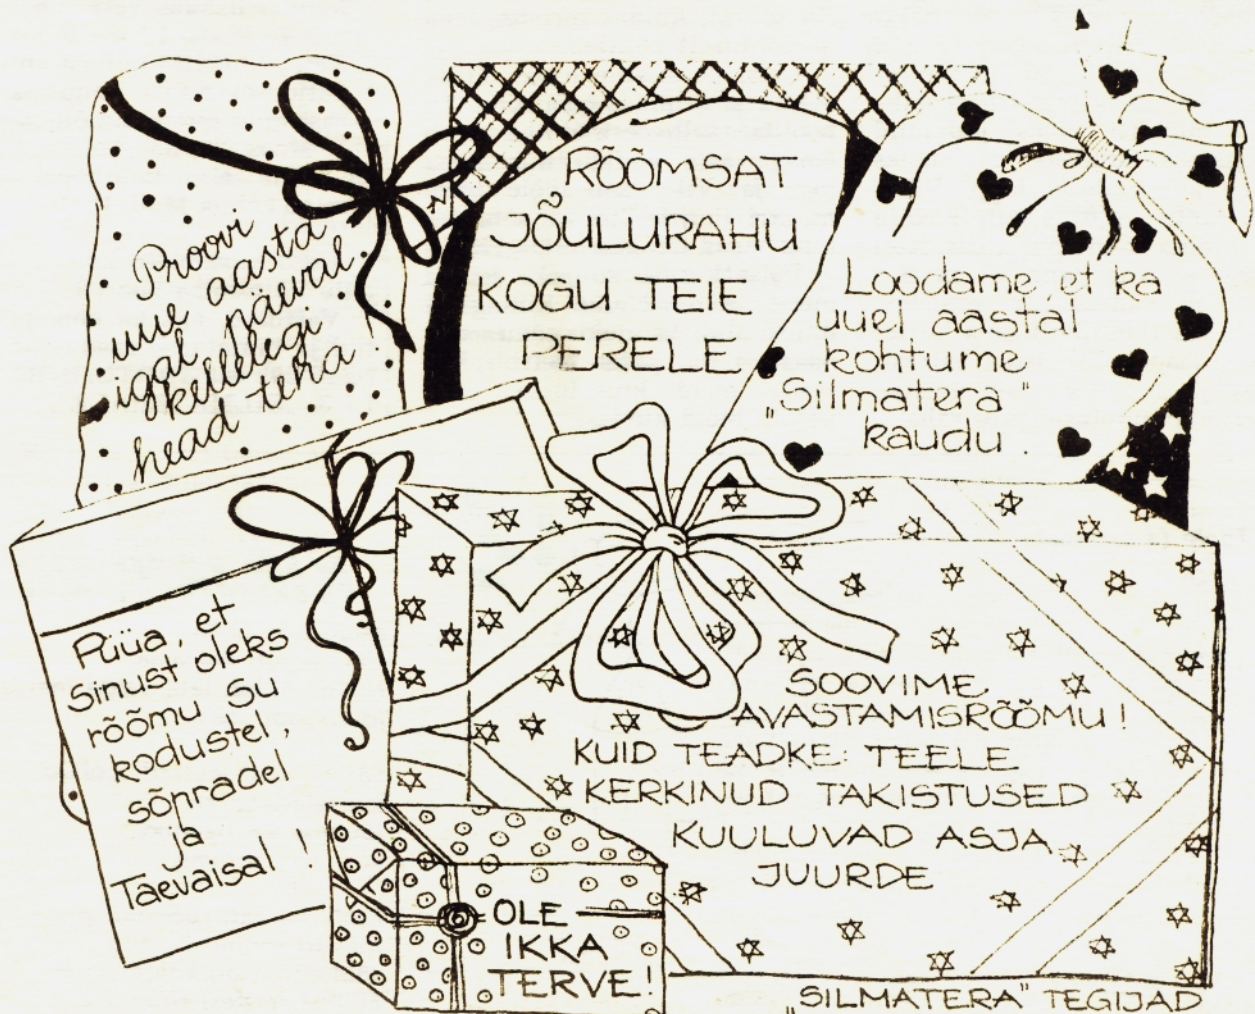 Proovi
uue aasta
igal päeval
kellelegi
head teha!
RÕÕMSAT
JÕULURAHU
KOGU TEIE
PERELE
Loodame, et ka
uuel aastal
kohtume
„Silmatera"
kaudu.
Püüa, et
sinust oleks
rõõmu su
kodustel,
sõpradel
ja
Taevaisal!
SOOVIME
AVASTAMISRÕÕMU!
KUID TEADKE: TEELE
KERKINUD TAKISTUSED
KUULUVAD ASJA
JUURDE
OLE
IKKA
TERVE!
„SILMATERA" TEGIJAD